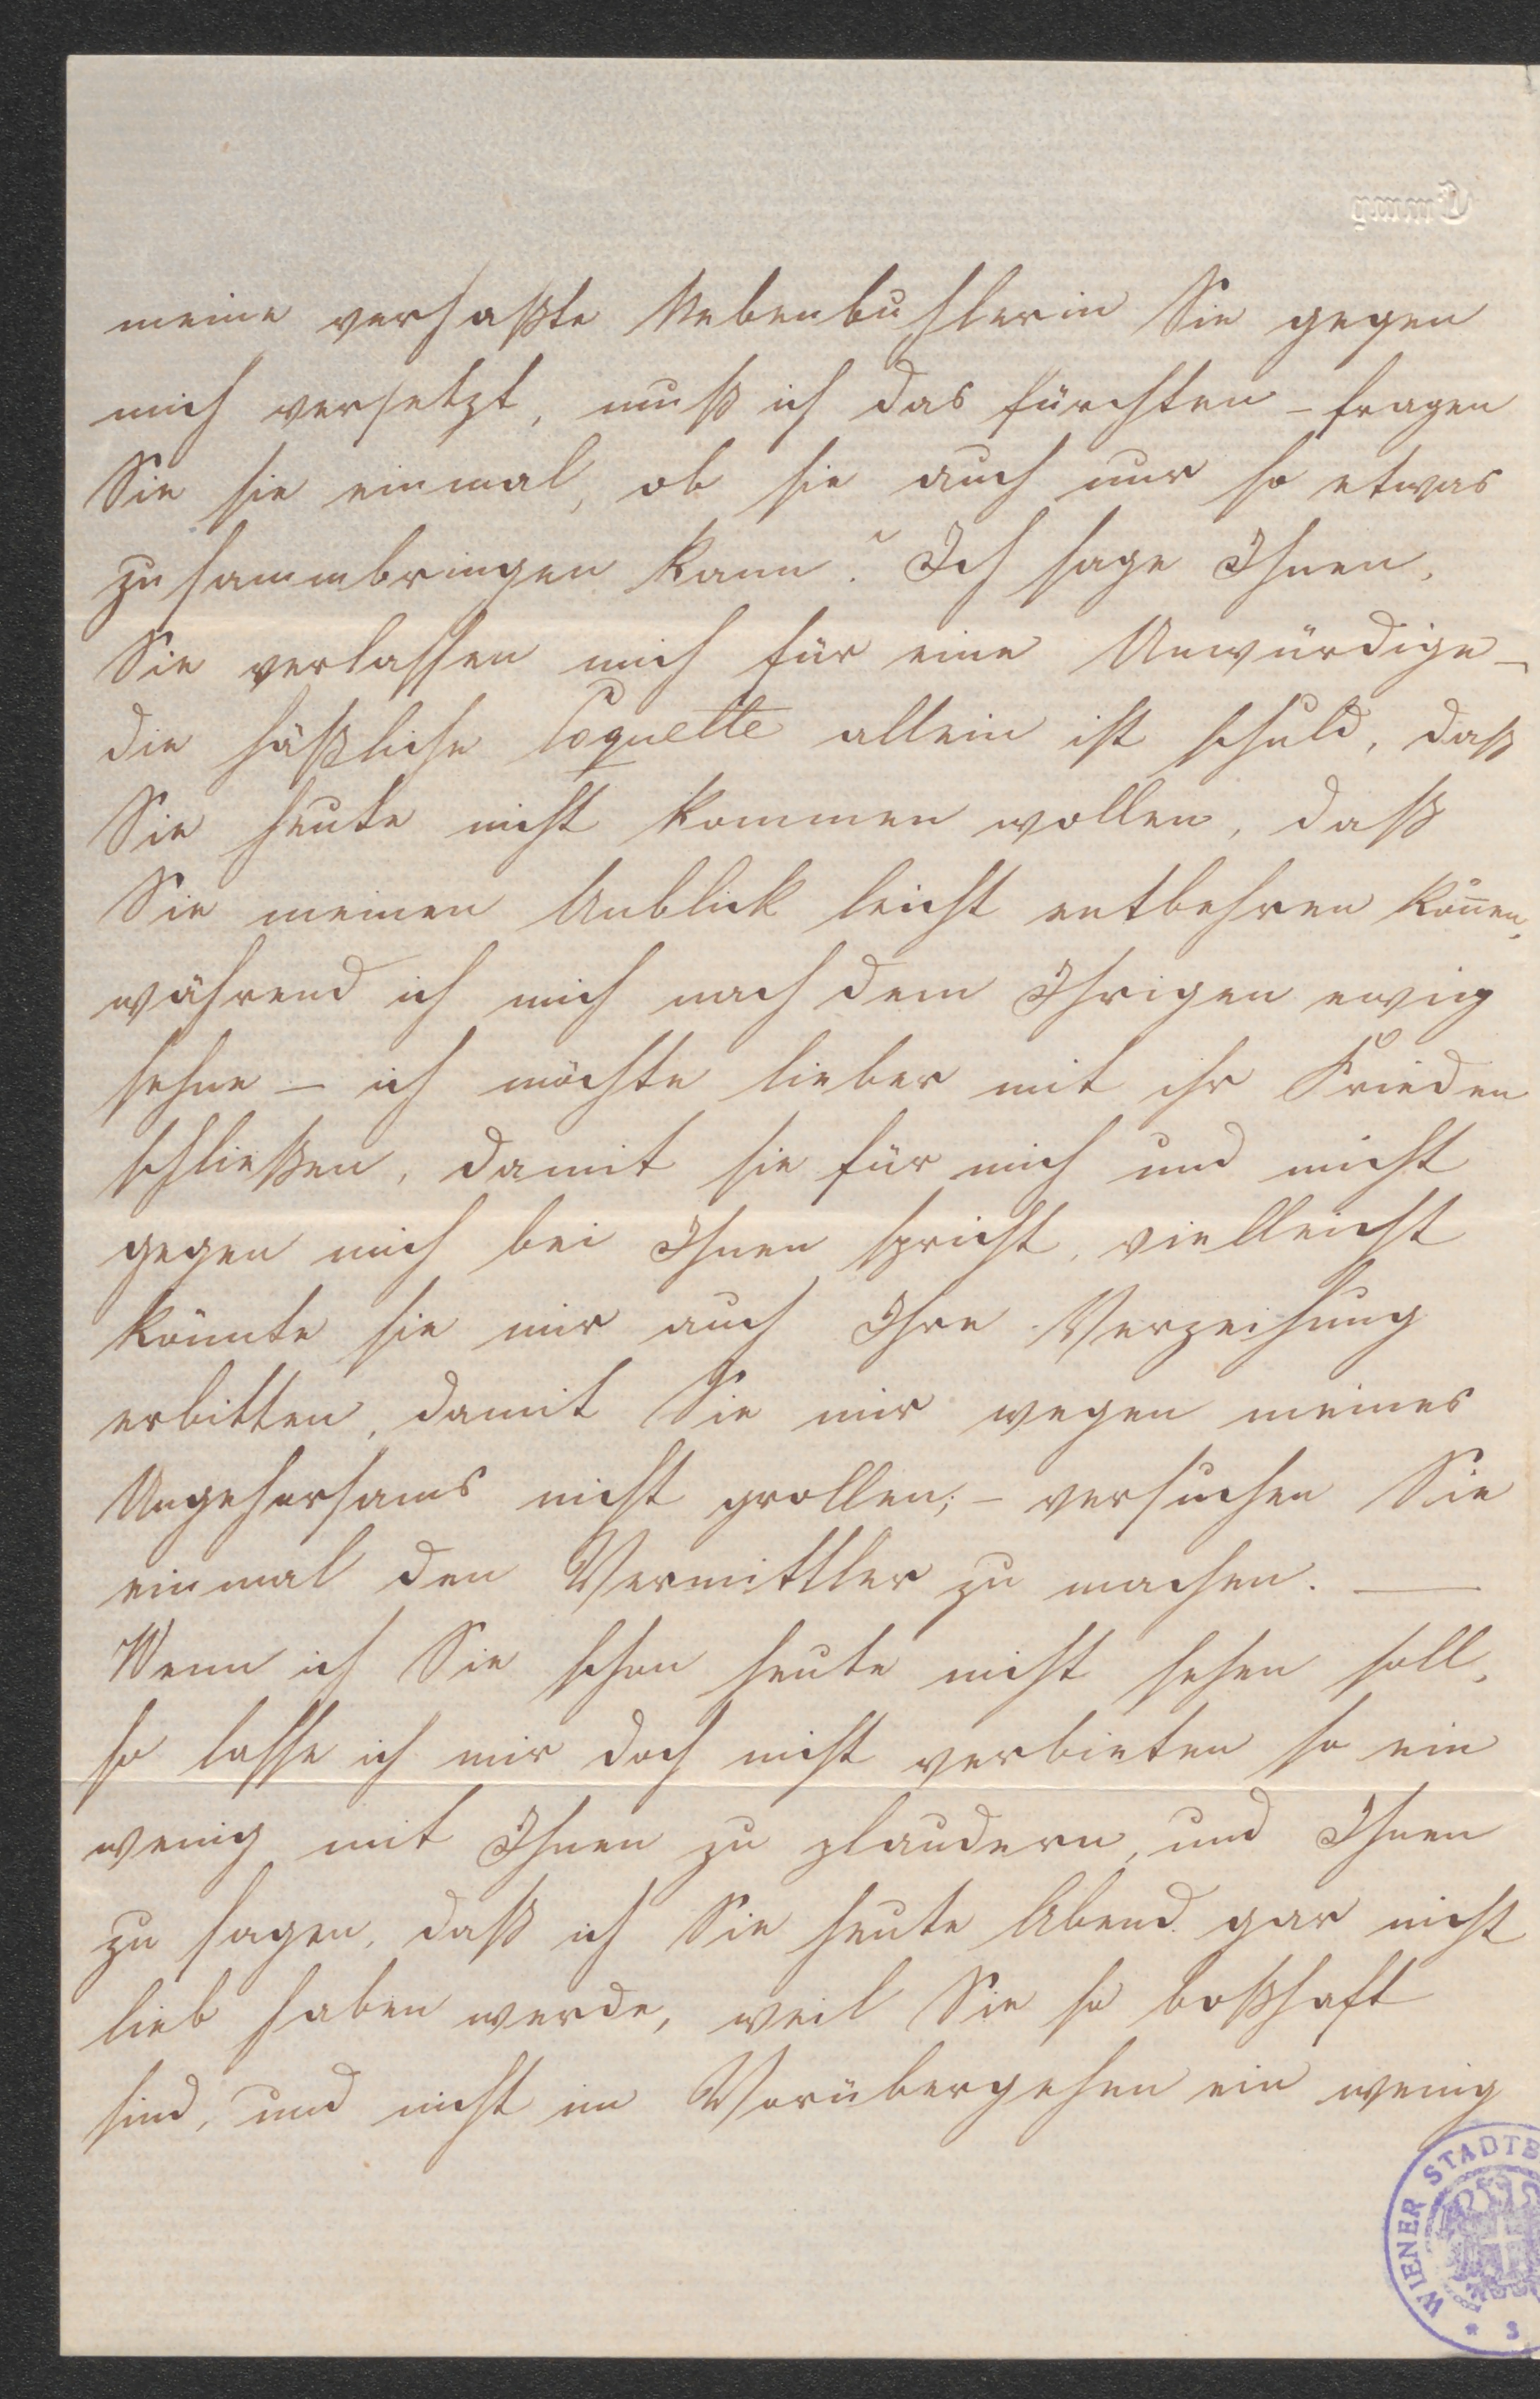 Emmy
meine verhaßte Nebenbuhlerin Sie gegen
mich versetzt, muß ich das fürchten – fragen
Sie sie einmal, ob sie auch nur so etwas
zusammbringen kann? Ich sage Ihnen,
Sie verlassen mich für eine Unwürdige –
die häßliche Coquette allein ist schuld, daß
Sie heute nicht kommen wollen, daß
Sie meinen Anblick leicht entbehren kön̄en,
während ich mich nach dem Ihrigen ewig
sehne – ich möchte lieber mit ihr Frieden
schließen, damit sie für mich und nicht
gegen mich bei Ihnen spricht, vielleicht
könnte sie mir auch Ihre Verzeihung
erbitten, damit Sie mir wegen meines
Ungehorsams nicht grollen; – versuchen Sie
einmal den Vermittler zu machen. —
Wenn ich Sie schon heute nicht sehen soll,
so lasse ich mir doch nicht verbieten so ein
wenig mit Ihnen zu plaudern, und Ihnen
zu sagen, daß ich Sie heute Abend gar nicht
lieb haben werde, weil Sie so boßhaft
sind, und nicht im Vorübergehen ein wenig
WIENER STADTB